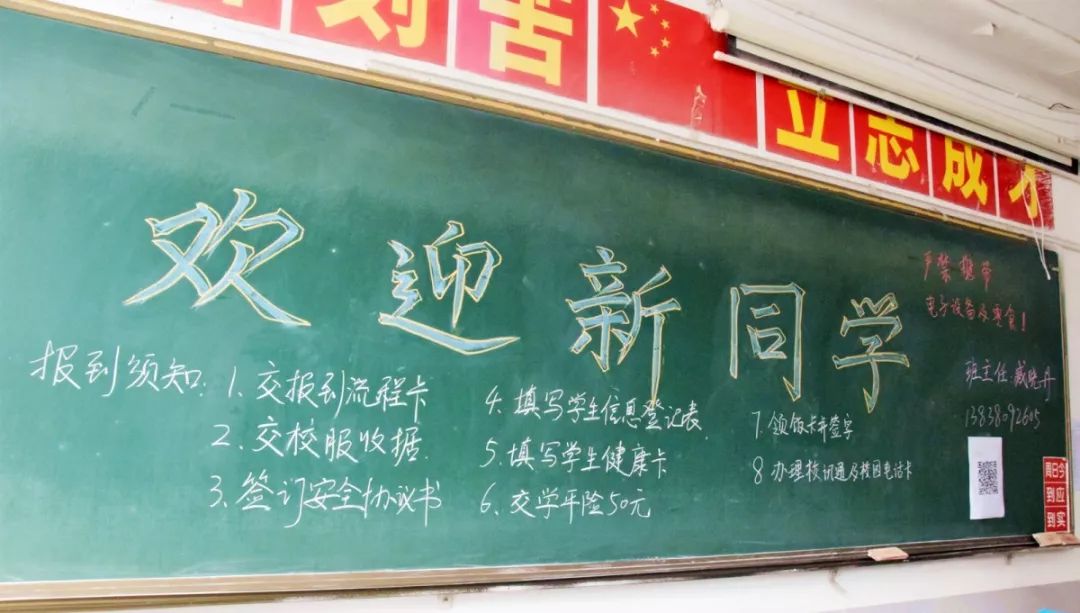 刻苦
立志成才
欢迎新同学
严禁携带
电子设备及零食!
报到须知:
1. 交报到流程卡
2. 交校服收据
3. 签订安全协议书
4. 填写学生信息登记表
5. 填写学生健康卡
6. 交学平险50元
7. 领饭卡并签字
8 办理校讯通及校园电话卡
班主任:臧晓丹
13838092605
周日今
到应
到实